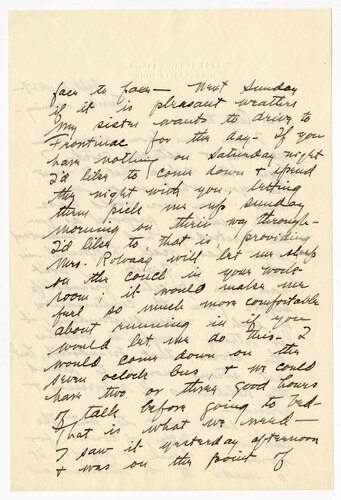 face to face— Next Sunday
if it is pleasant weather
my sister wants to drive to
Frontenac for the day— If you
have nothing on Saturday night
I'd like to come down & spend
the night with you, letting
them pick me up Sunday
morning on their way through—
I'd like to, that is, providing
Mrs. will let me sleep
on the couch in your work
room; it would make me
feel so much more comfortable
about running in if you
would let me do this— I
would come down on the
seven oclock bus, & we could
have two or three good hours
of talk before going to bed—
That is what we need—
I saw it yesterday afternoon
& was on the point of